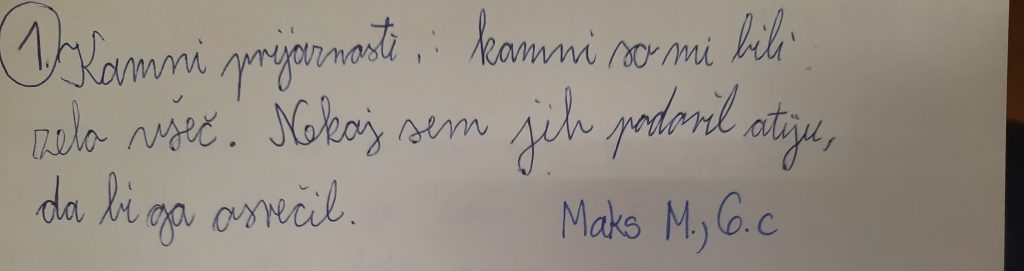 1. Kamni prijaznosti : kamni so mi bili
zelo všeč. Nekaj sem jih podaril atiju,
da bi ga osrečil.
Maks M., 6. c